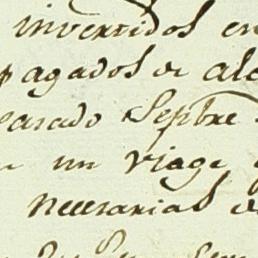 invertidos en
pagados de alc
pasado Septre
un viage
necesarias de